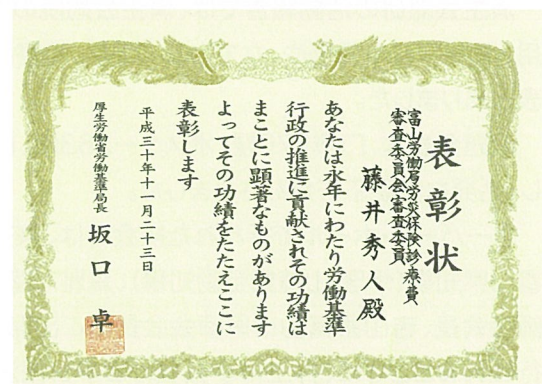 表彰状
富山労働局労災保険診療費
審査委員会審査委員
藤井秀人殿
あなたは永年にわたり労働基準
行政の推進に貢献されその功績は
まことに顕著なものがあります
よってその功績をたたえここに
表彰します
平成三十年十一月二十三日
厚生労働省労働基準局長 坂口卓